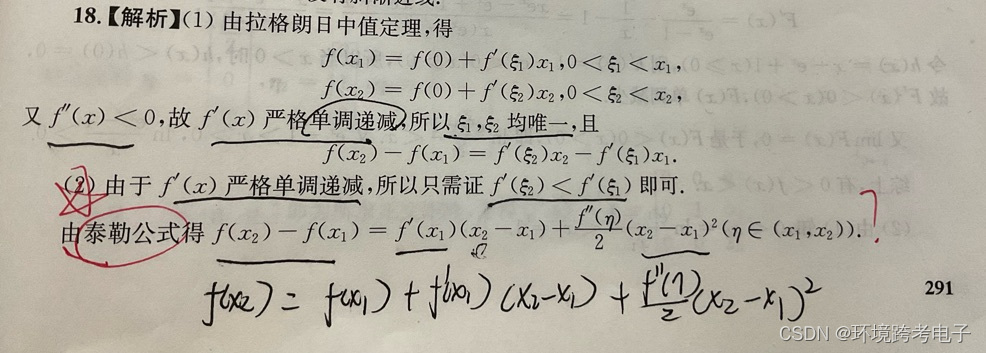 18.【解析】(1) 由拉格朗日中值定理,得
f(x₁) = f(0) + f′(ξ₁)x₁, 0 < ξ₁ < x₁,
f(x₂) = f(0) + f′(ξ₂)x₂, 0 < ξ₂ < x₂,
又 f″(x) < 0,故 f′(x) 严格单调递减,所以 ξ₁,ξ₂ 均唯一,且
f(x₂) − f(x₁) = f′(ξ₂)x₂ − f′(ξ₁)x₁.
(2) 由于 f′(x) 严格单调递减,所以只需证 f′(ξ₂) < f′(ξ₁) 即可.
由泰勒公式得 f(x₂) − f(x₁) = f′(x₁)(x₂ − x₁) + f″(η)/2 (x₂ − x₁)² (η ∈ (x₁,x₂)). ?
f(x₂) = f(x₁) + f′(x₁) (x₂−x₁) + f″(η)/2 (x₂−x₁)²
291
CSDN @环境跨考电子